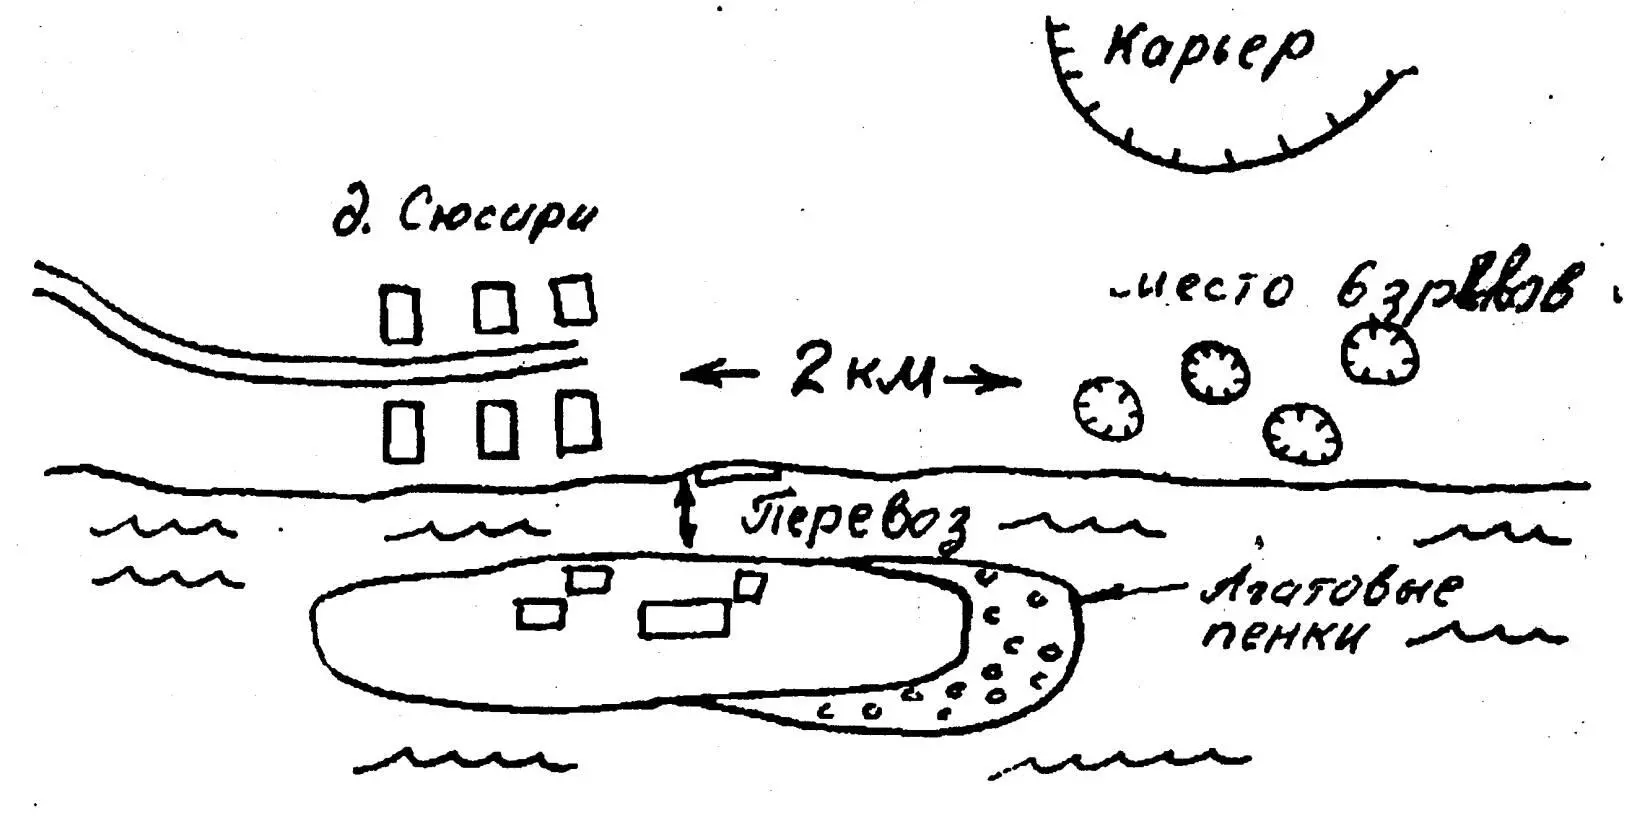 Карьер
д. Сюсири
место взрывов
2 км
Перевоз
Агатовые
пенки